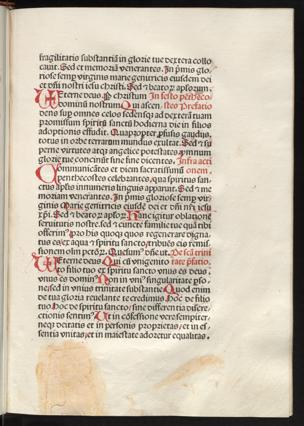 fragilitatis substantiā in glorie tue dextera collo
cavit. Sed et memoriā venerantes. In p̄mis glo
riose semp virginis marie genitricis eiusdem dei
et dn̄i nostri iesu christi. Sed et beatoꝝ apl̓oꝝum.
Eterne deus P christum In festo pēthecō
dominū nostrum Qui ascen stes Prefatio
dens sup omnes celos sedensq̄ ad dexterā tuam
promissum spiritum sanctū hodierna die in filios
adoptionis effudit. Quapropter ꝓfusis gaudijs
totus in orbe terrarum mundus exultat. Sed et su
perne virtutes atq̄ angelice potestates ymnum
glorie tue concinūt sine fine dicentes. Infra acti
Communicātes et diem sacratissimū onem.
pentecostes celebrantes, qua spiritus san
ctus apl̓is innumeris linguis apparuit. Sed et me
moriam venerantes. In pmis gloriose semp virgi
nis marie genitricis eiusdē dei et dn̄i nr̄i iesu
xp̄i. Sed et beatoꝝ apl̓oꝝ Hanc igitur oblationē
servitutis nostre sed et cuncte familie tue quā tibi
offerim⁹ pro his quoq̄ quos regenerare digna
tus es ex aqua et spiritu sancto, tribuēs eis remis
sionem oīm pctōꝝ. Quesum⁹ dn̄e ut. De scā trini
Eterne deus Qui cū unigenito tate pfatio.
to filio tuo et spiritu sancto unus es deus
unus es domin⁹ Non in uni⁹ singularitate pso
ne, sed in unius trinitate substātie Quod enim
de tua gloria revelante te credimus Hoc de filio
Hoc de spiritu sancto, sine differentia discre
ctionis sentim⁹ Ut in cōfessione vere sempiter
neq̄ deitatis et in personis proprietas, et in es
sentia unitas, et in maiestate adoretur equalitas.